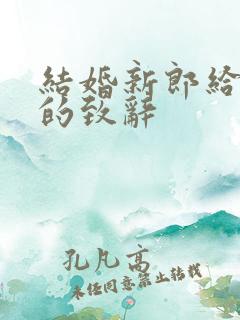 結婚新郎給
的致辭
孔凡高
未经同意禁止转载